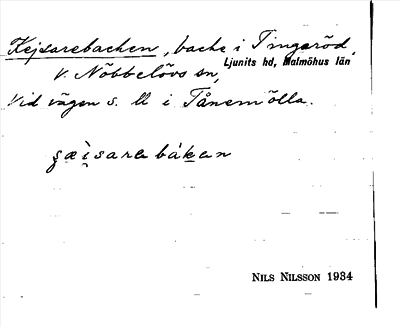 Kejsarebacken, backe i Tingaröd,
V. Nöbbelövs sn, Ljunits hd, Malmöhus län
Vid vägen s. ll i Tånemölla.
bákan
NILS NILSSON 1934